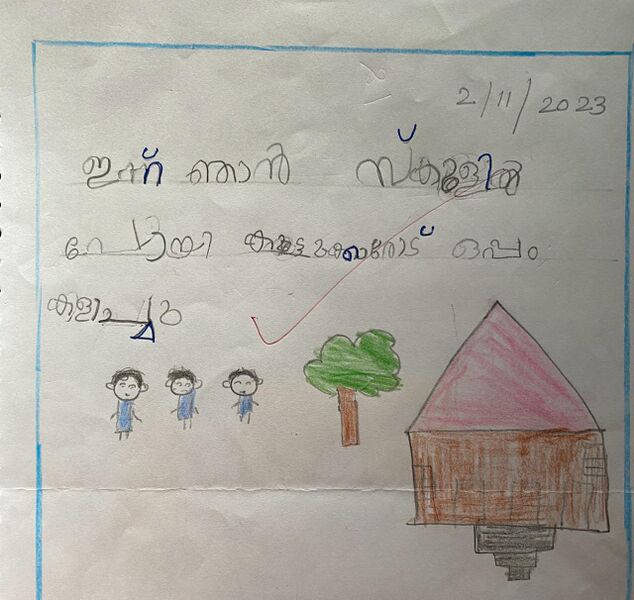 2/11/2023
ഇന്ന് ഞാൻ സ്കൂളിൽ
പോയി കൂട്ടുകാരോട് ഒപ്പം
കളിച്ചു